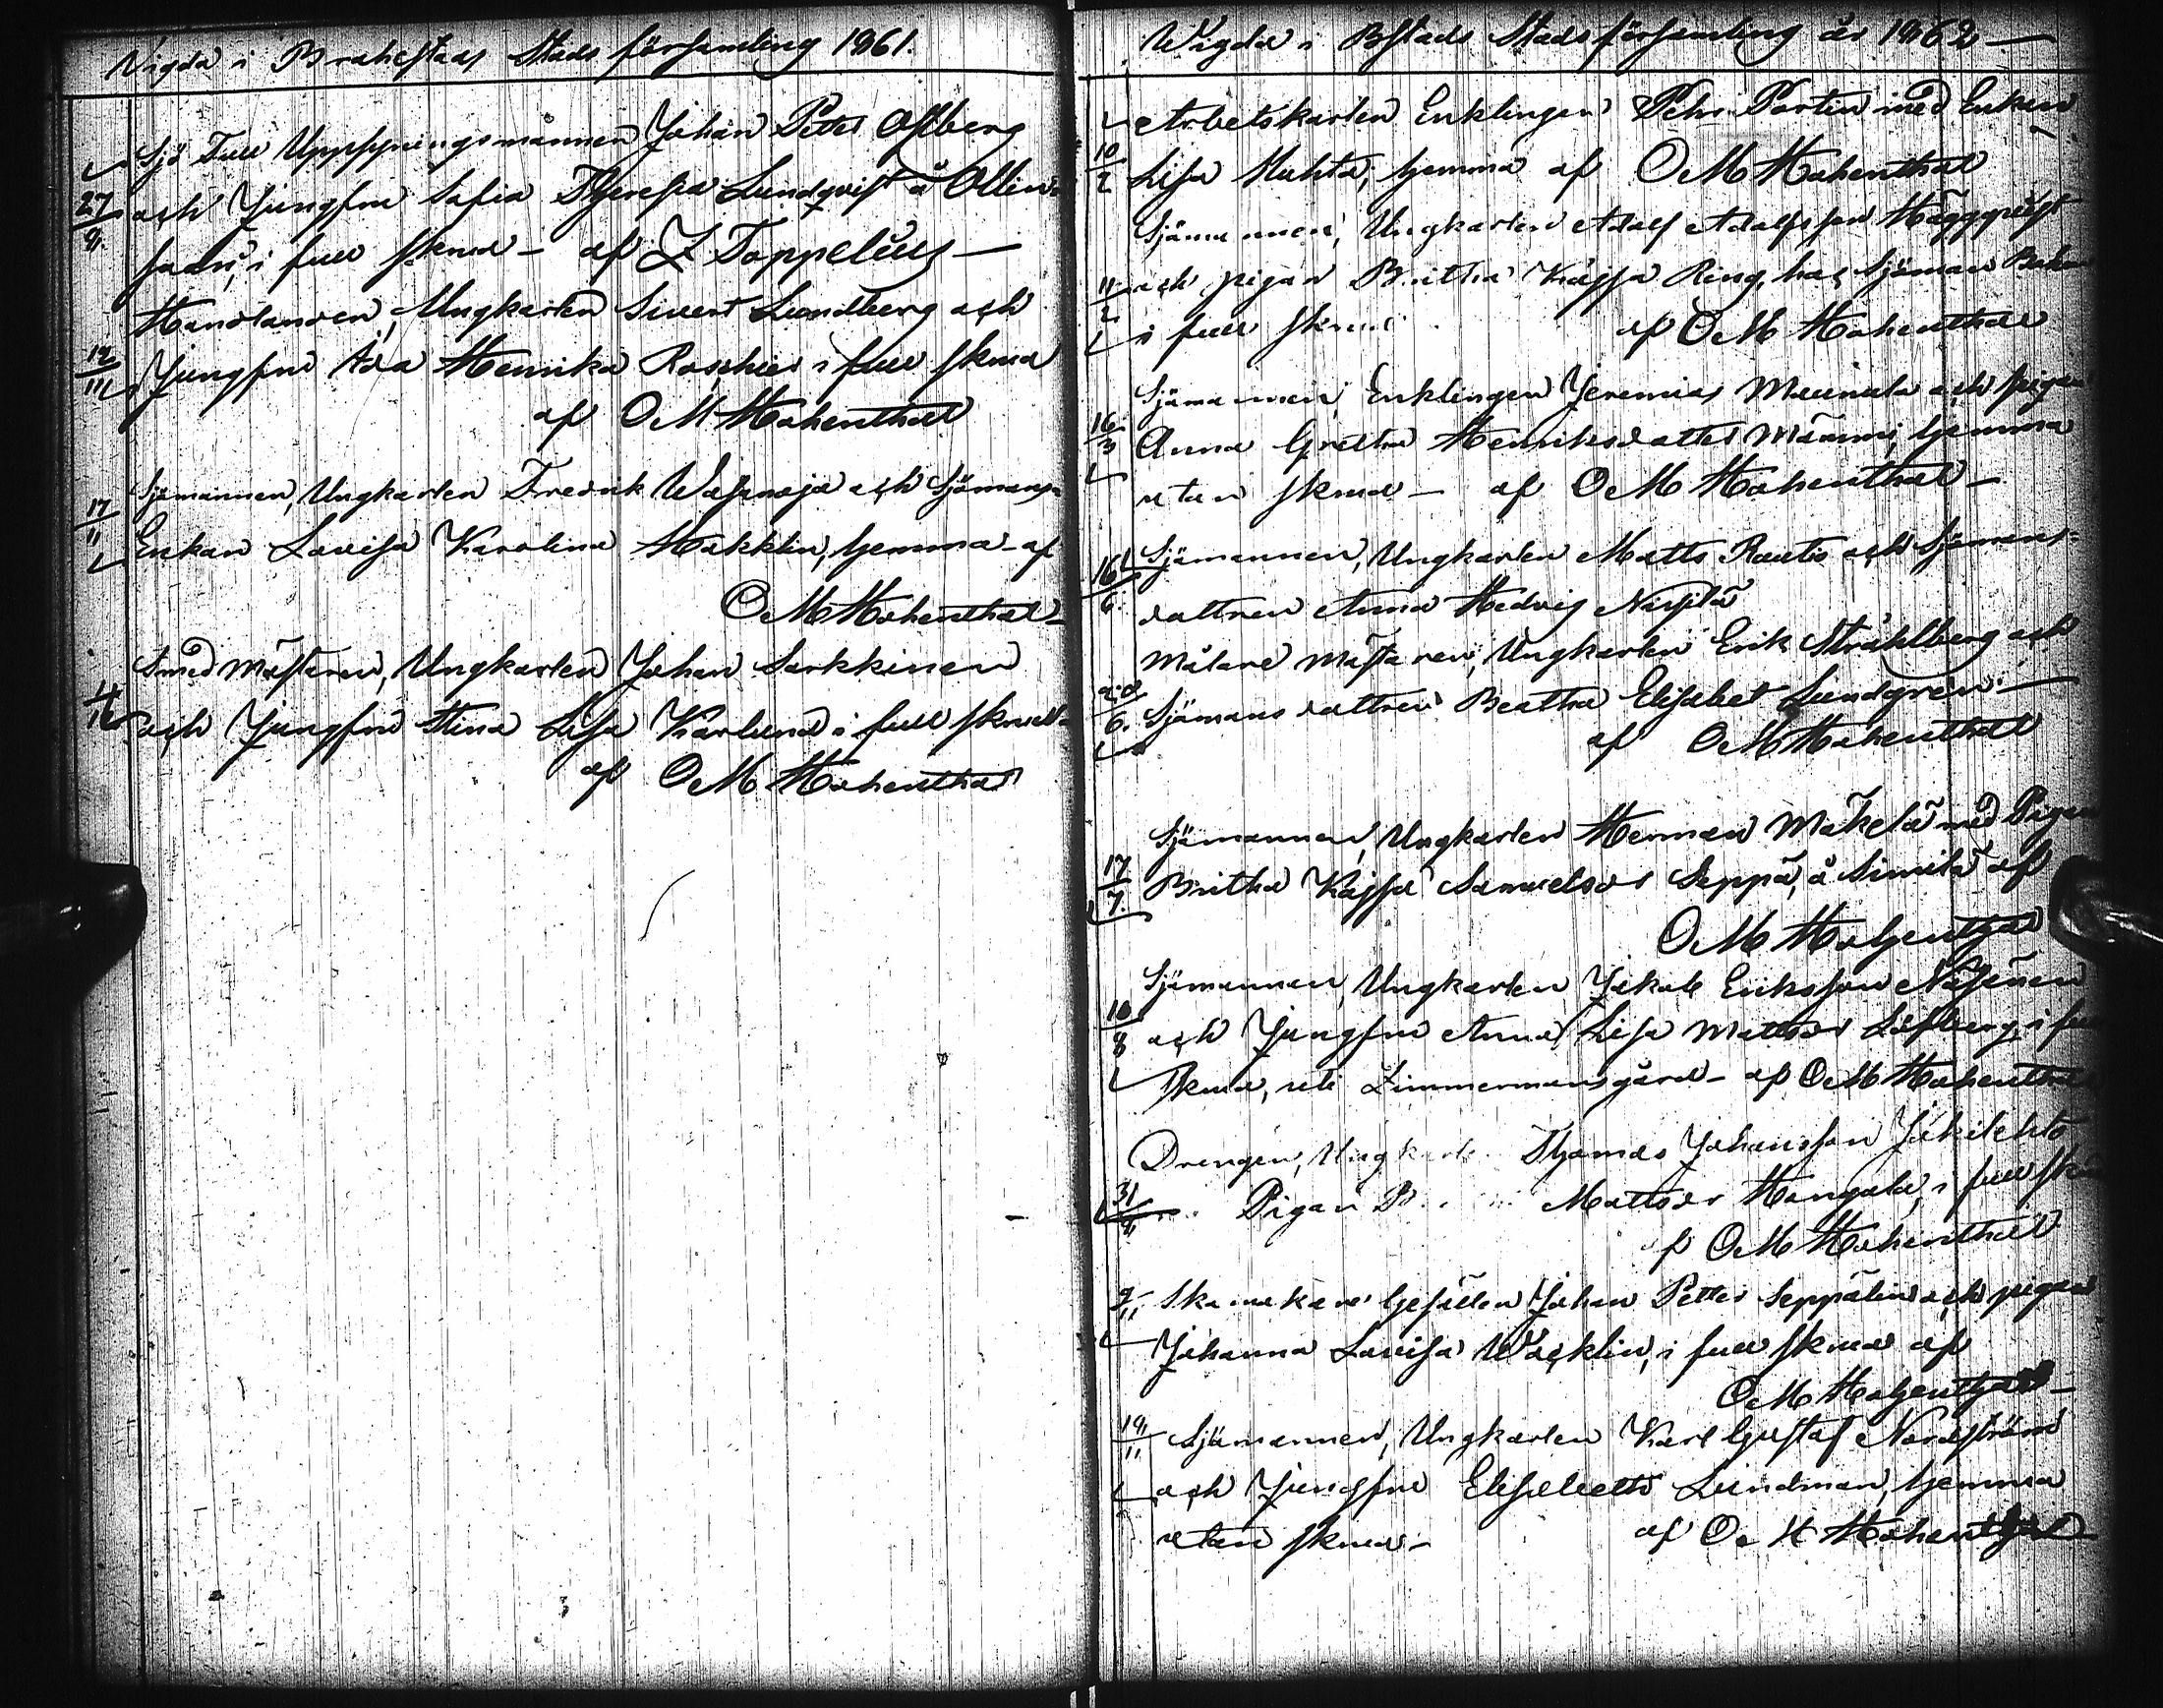 Vigda i Brahestads Stads församling 1861.
Sjö Tull Uppsyningsmannen Johan Petter Åfberg
27/9. och Jungfru Sofia Theresa Lundqvist å Ollin
i full skrud – af Z Toppelius –
Handlanden, Ungkarlen Sivert Lundberg och
Jungfru Ada Henrika Roschier i full skrud
af O M Hohenthal
Sjömannen, Ungkarlen Fredrik och Sjömans
17/11 Enkan Lovisa Karolina Hakklin, hemma – af
O M Hohenthal –
Smed Mästaren, Ungkarlen Johan Sarkkinen
och Jungfru Stina Lisa Karlund i full skrud
af O M Hohenthal
Wigda i Bstads Stads församling år 1862 –
Arbetskarlen Enklingen Pehr Portin med Enkan
10/2 Lisa Huhta, hemma af O M Hohenthal
Sjömannen, Ungkarlen Adolf Adolfsson Häggqvist
11/2 och pigan Britha Kajsa Ring, hos Sjöman
i full skrud af O M Hohenthal
Sjömannen Enklingen Jeremias Meinula och pigan
16/3 Anna Gretha Henriksdotter Mämmi, hemma
utan skrud – af O M Hohenthal –
Sjömannen, Ungkarlen Matts Rautio och Sjömans-
16/6. dottren Anna Hedvig Niskilä
Målare Mästaren, Ungkarlen Erik Stråhlberg och
22/6. Sjömans dottren Beatha Elisabet Lundgren –
af O M Hohenthal
Sjömannen, Ungkarlen Herman Mäkelä med Pigan
17/7. Britha Kajsa Samuelsdr Seppä, å Similä af
O M Hohenthal
Sjömannen, Ungkarlen Jakob Eriksson Näsänen
10/8 och Jungfru Anna Lisa Mattsdr Löfberg, i full
skrud, uti Zimmermans gård – af O M Hohenthal
Drengen, Ungkarlen Thomas Johansson Jokilehto
31/ Pigan B Mattsdr Hangala, i full skrud
af O M Hohenthal
Skomakare Gesällen Johan Petter Seppälin och pigan
Johanna Lovisa Wacklin, i full skrud af
O M Hohenthal –
Sjömannen, Ungkarlen Karl Gustaf Nordström
och Jungfru Elisabeth Lundman, hemma
utan skrud – af O M Hohenthal